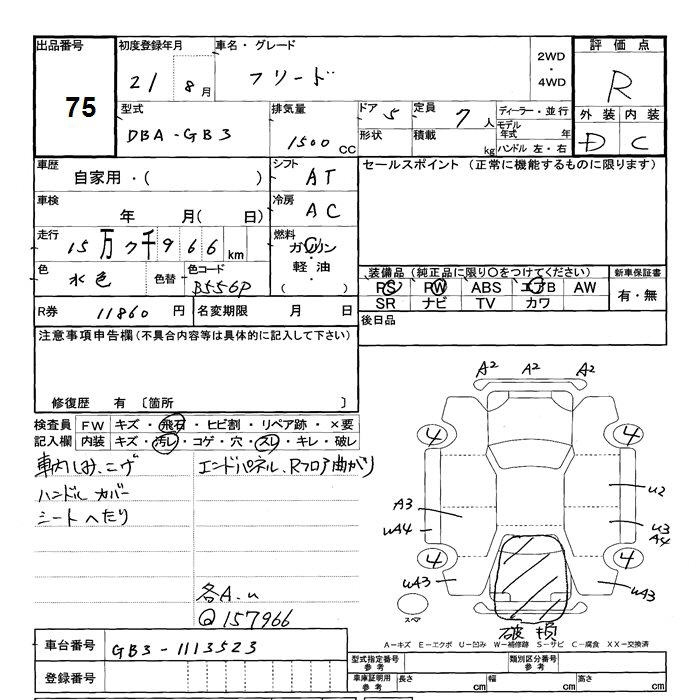 出品番号
75
初度登録年月
21 8月
車名・グレード
フリード
2WD
・
4WD
評価点
R
外装 内装
D C
型式
DBA-GB3
排気量
1500 CC
ドア 5
形状
定員 7人
積載 kg
ディーラー・並行
モデル年式 年
ハンドル 左・右
車歴
自家用・( )
シフト
AT
セールスポイント (正常に機能するものに限ります)
車検
年 月( 日)
冷房
AC
走行
15万7千966km
燃料
ガソリン
・
軽油
( )
色
水色
色替
色コード
B556P
装備品(純正品に限り○をつけてください)
PS PW ABS エアB AW
SR ナビ TV カワ
新車保証書
有・無
R券 11860円
名変期限 月 日
後日品
注意事項申告欄(不具合内容等は具体的に記入して下さい)
修復歴 有 〔箇所 〕
検査員
記入欄
FW キズ・飛石・ヒビ割・リペア跡・×要
内装 キズ・汚レ・コゲ・穴・スレ・キレ・破レ
車内しみ、こげ
ハンドル カバー
シートへたり
エンドパネル、Rフロア曲がり
各A.u
@157966
A2 A2 A2
4 4
U2
A3
UA4
U3
A4
4 4
UA3 UA3
スペア
破損
A-キズ E-エクボ U-凹み W-補修跡 S-サビ C-腐食 XX-交換済
車台番号 GB3-1113523
登録番号
型式指定番号
参考
類別区分番号
参考
車庫証明用
参考
長さ cm
幅 cm
高さ cm